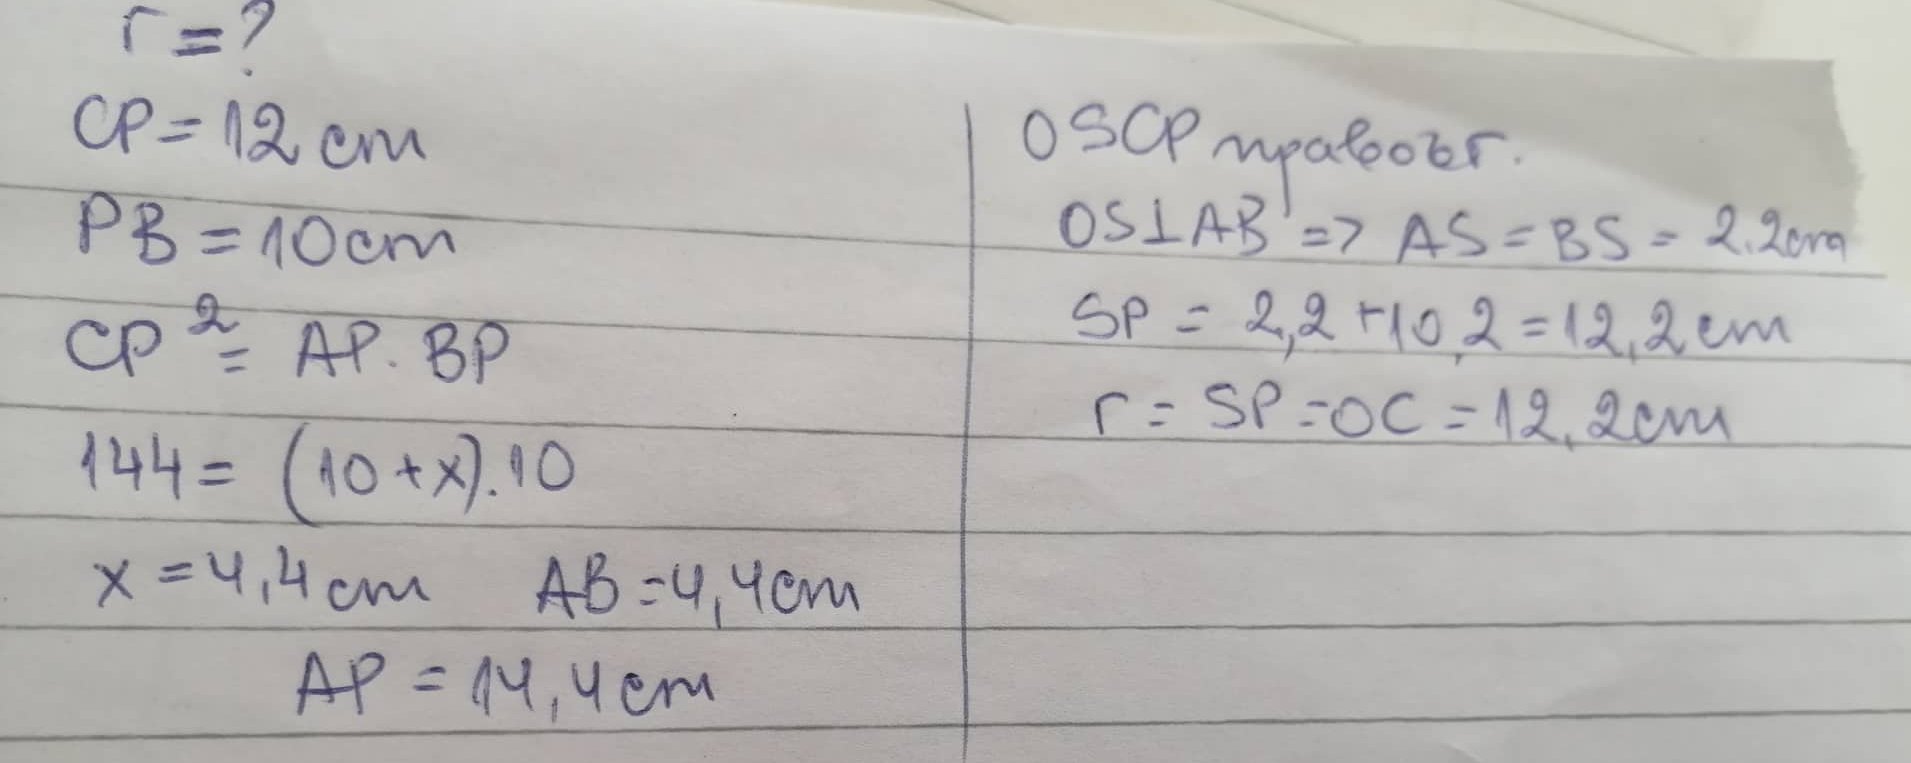 r = ?
CP = 12 cm
PB = 10 cm
CP² = AP . BP
144 = (10 + x) . 10
x = 4,4 cm AB = 4,4 cm
AP = 14,4 cm
OSCP правоъг.
OS ⊥ AB => AS = BS = 2.2 cm
SP = 2,2 + 10,2 = 12,2 cm
r = SP = OC = 12,2 cm